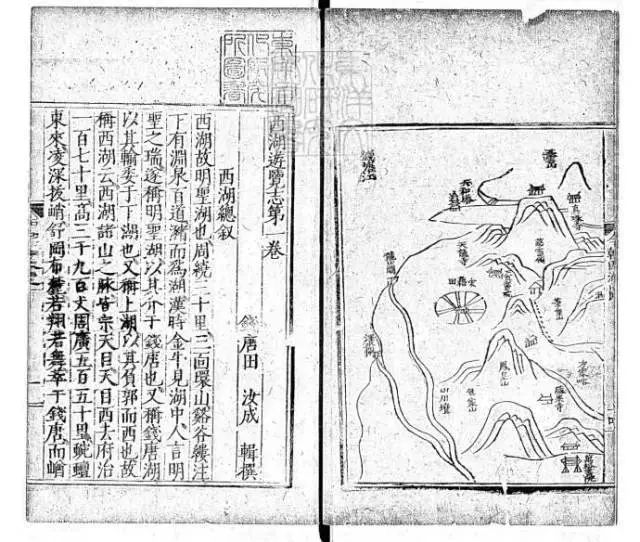 錢塘江
六和塔
天龍寺
宋藉田
慈雲嶺
鳳凰山
山川壇
勝果寺
西湖遊覽志第一卷
錢唐田汝成輯撰
西湖總叙
西湖故明聖湖也周繞三十里三面環山谿谷縷注
下有淵泉百道瀦而爲湖漢時金牛見湖中人言明
聖之瑞遂稱明聖湖以其介于錢唐也又稱錢唐湖
以其輸委于下湖也又稱上湖以其負郭而西也故
稱西湖云西湖諸山之脉皆宗天目天目西去府治
一百七十里高三千九百丈周廣五百五十里蜿蟺
東來凌深拔峭舒岡布麓若翔若舞萃于錢唐而崷